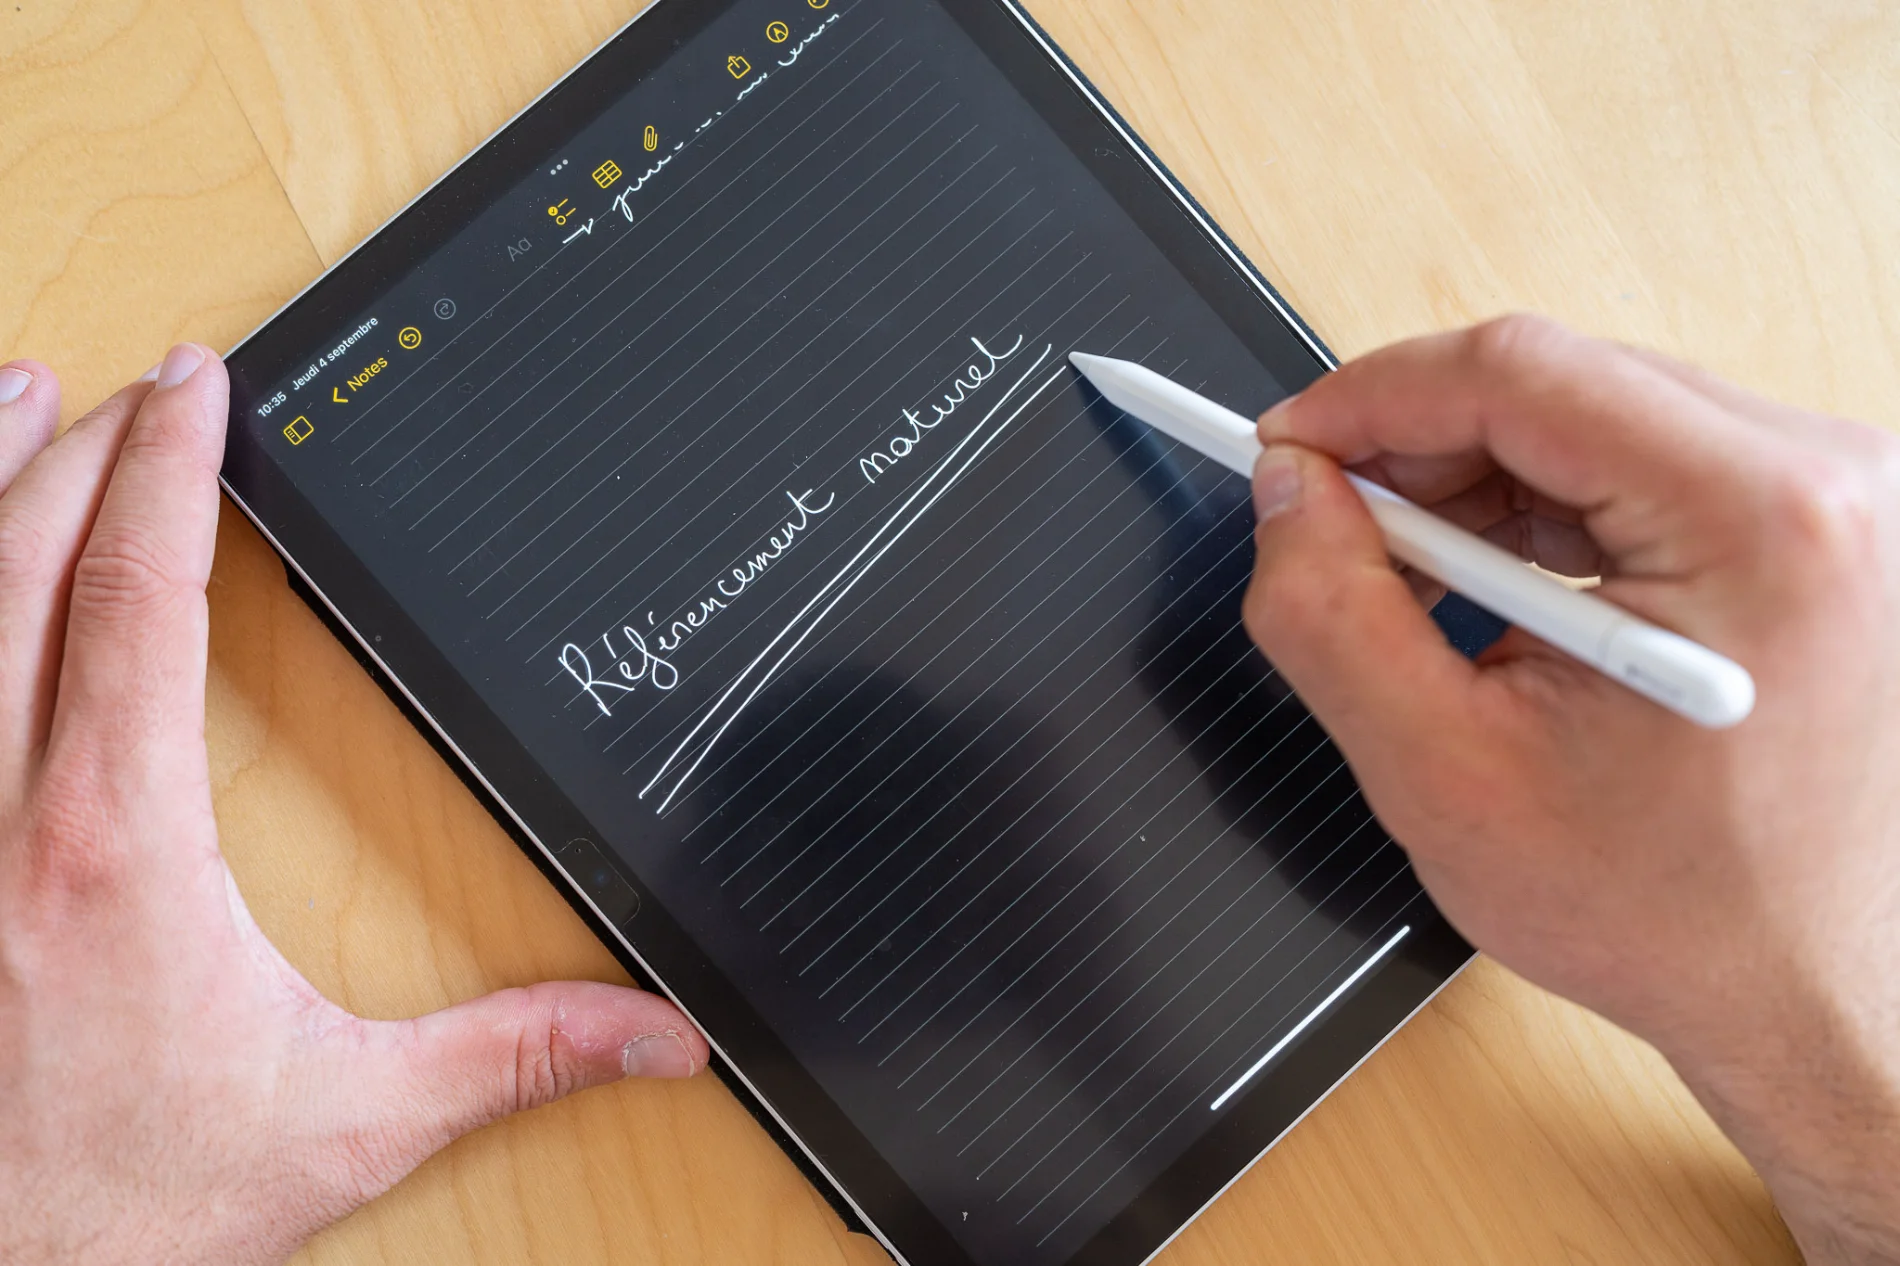 10:35 Jeudi 4 septembre
Notes
Aa
Référencement naturel